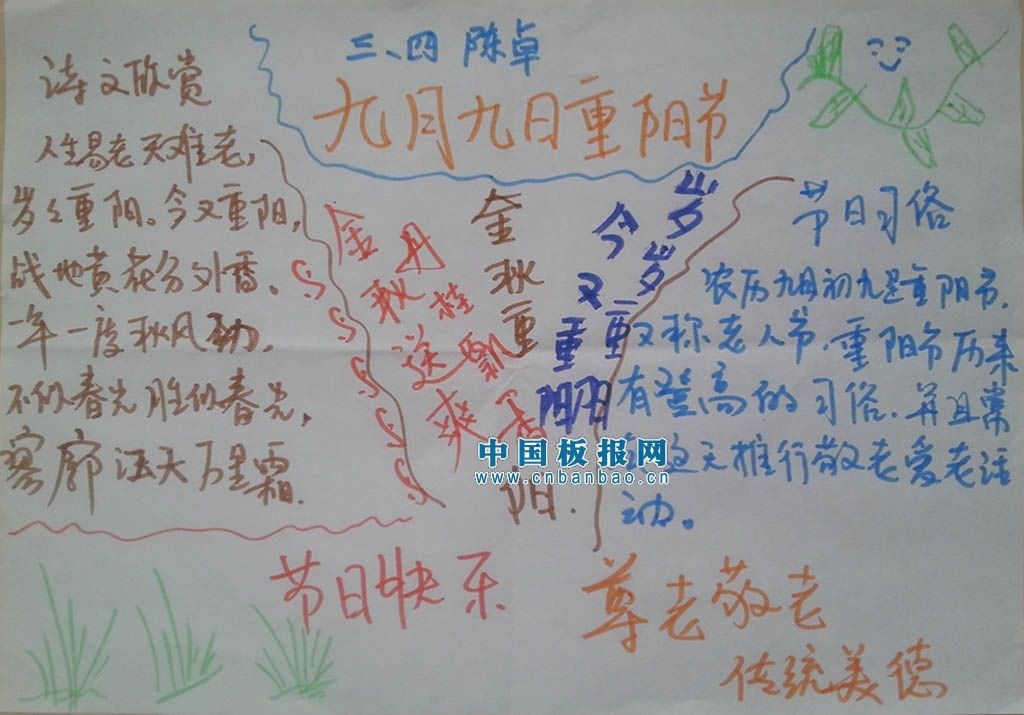 三、四 陈卓
九月九日重阳节
诗文欣赏
人生易老天难老,
岁々重阳。今又重阳,
战地黄花分外香。
一年一度秋风劲,
不似春光胜似春光,
寥廓江天万里霜.
金秋送爽
丹桂飘香
金秋重阳.
岁岁重阳
今又重阳
节日习俗
农历九月初九是重阳节,
又称老人节.重阳节历来
有登高的习俗.并且常
这天推行敬老爱老活
动。
中国板报网
www.cnbanbao.cn
节日快乐
尊老敬老
传统美德